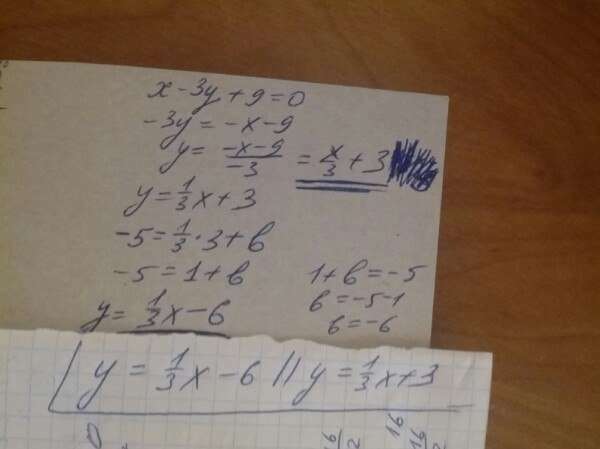 x - 3y + 9 = 0
-3y = -x - 9
y = \frac{-x-9}{-3} = \frac{x}{3} + 3
y = \frac{1}{3}x + 3
-5 = \frac{1}{3} · 3 + b
-5 = 1 + b
1 + b = -5
b = -5 - 1
b = -6
y = \frac{1}{3}x - 6
y = \frac{1}{3}x - 6 || y = \frac{1}{3}x + 3
16
16